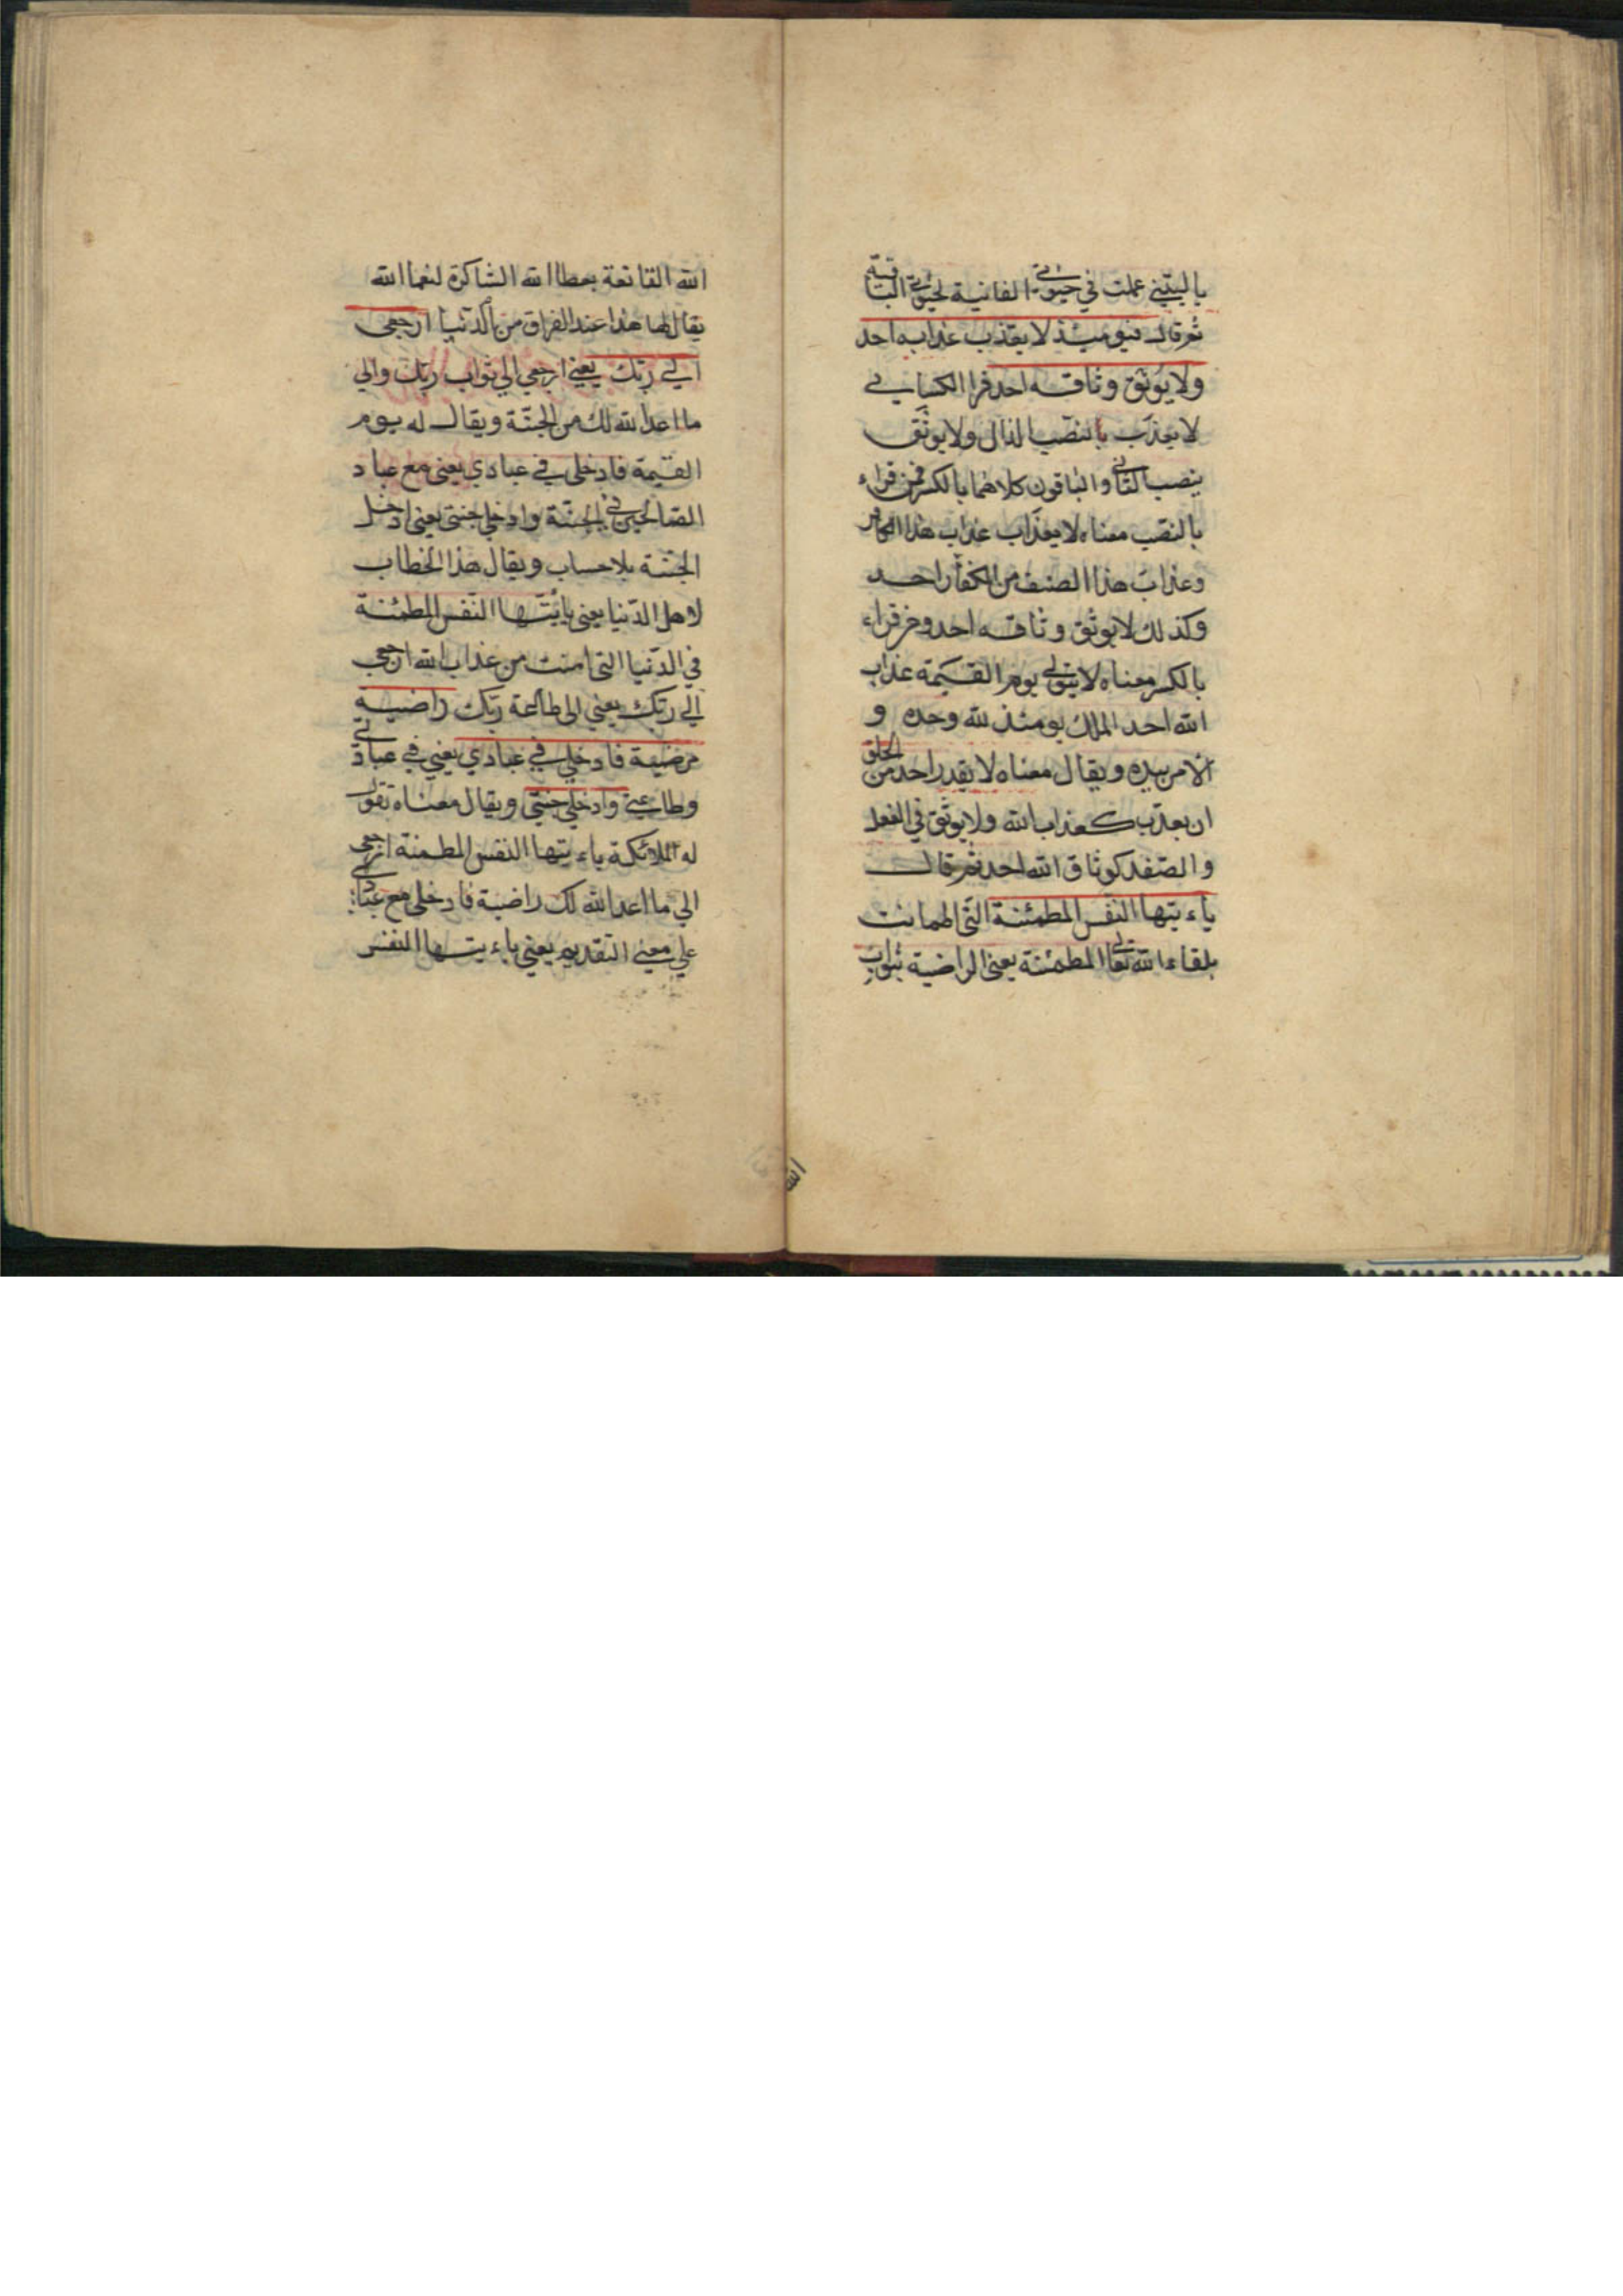 ياليتني عملت في حيوتي الفانية لحيوتي الباقية
ثم قال فيومئذ لا يعذب عذابه احد
ولا يوثق وثاقه احد قرا الكسايي
لا يعذب بالنصب الذال ولا يوثق
بنصب الثا والباقون كلاهما بالكسر فمن قراء
بالنصب معناه لا يعذاب عذاب هذا الكافر
وعذاب هذا الصنف من الكفار احد
وكذلك لا يوثق وثاقه احد ومن قراء
بالكسر معناه لا يتولي يوم القيمة عذاب
الله احد الملك يومئذ لله وحده و
الامر بيده ويقال معناه لا يقدر احد من الخلق
ان يعذب كعذاب الله ولا يوثق في الغل
والصفد كوثاق الله احد ثم قال
ياءيتها النفس المطمئنة التي اطمانت
بلقاء الله تعالي المطمئنة يعني الراضية بثواب
الله القانعة بعطا الله الشاكرة لنعما الله
يقال لها هذا عند الفراق من الدنيا ارجعي
الي ربك يعني ارجعي الي ثواب ربك والي
ما اعد الله لك من الجنة ويقال له يوم
القيمة فادخلي في عبادي يعني مع عباد
الصالحين في الجنة وادخلي جنتي يعني ادخل
الجنة بلا حساب ويقال هذا الخطاب
لاهل الدنيا يعني يايتها النفس المطمئنة
في الدنيا التي امنت من عذاب الله ارجعي
الي ربك يعني الي طاعة ربك راضية
مرضية فادخلي في عبادي يعني في عبادتي
وطاعتي وادخلي جنتي ويقال معناه تقول
له الملائكة ياءيتها النفس المطمئنة ارجعي
الي ما اعد الله لك راضية فادخلي مع عبادي
علي معني التقديم يعني ياءيتها النفس